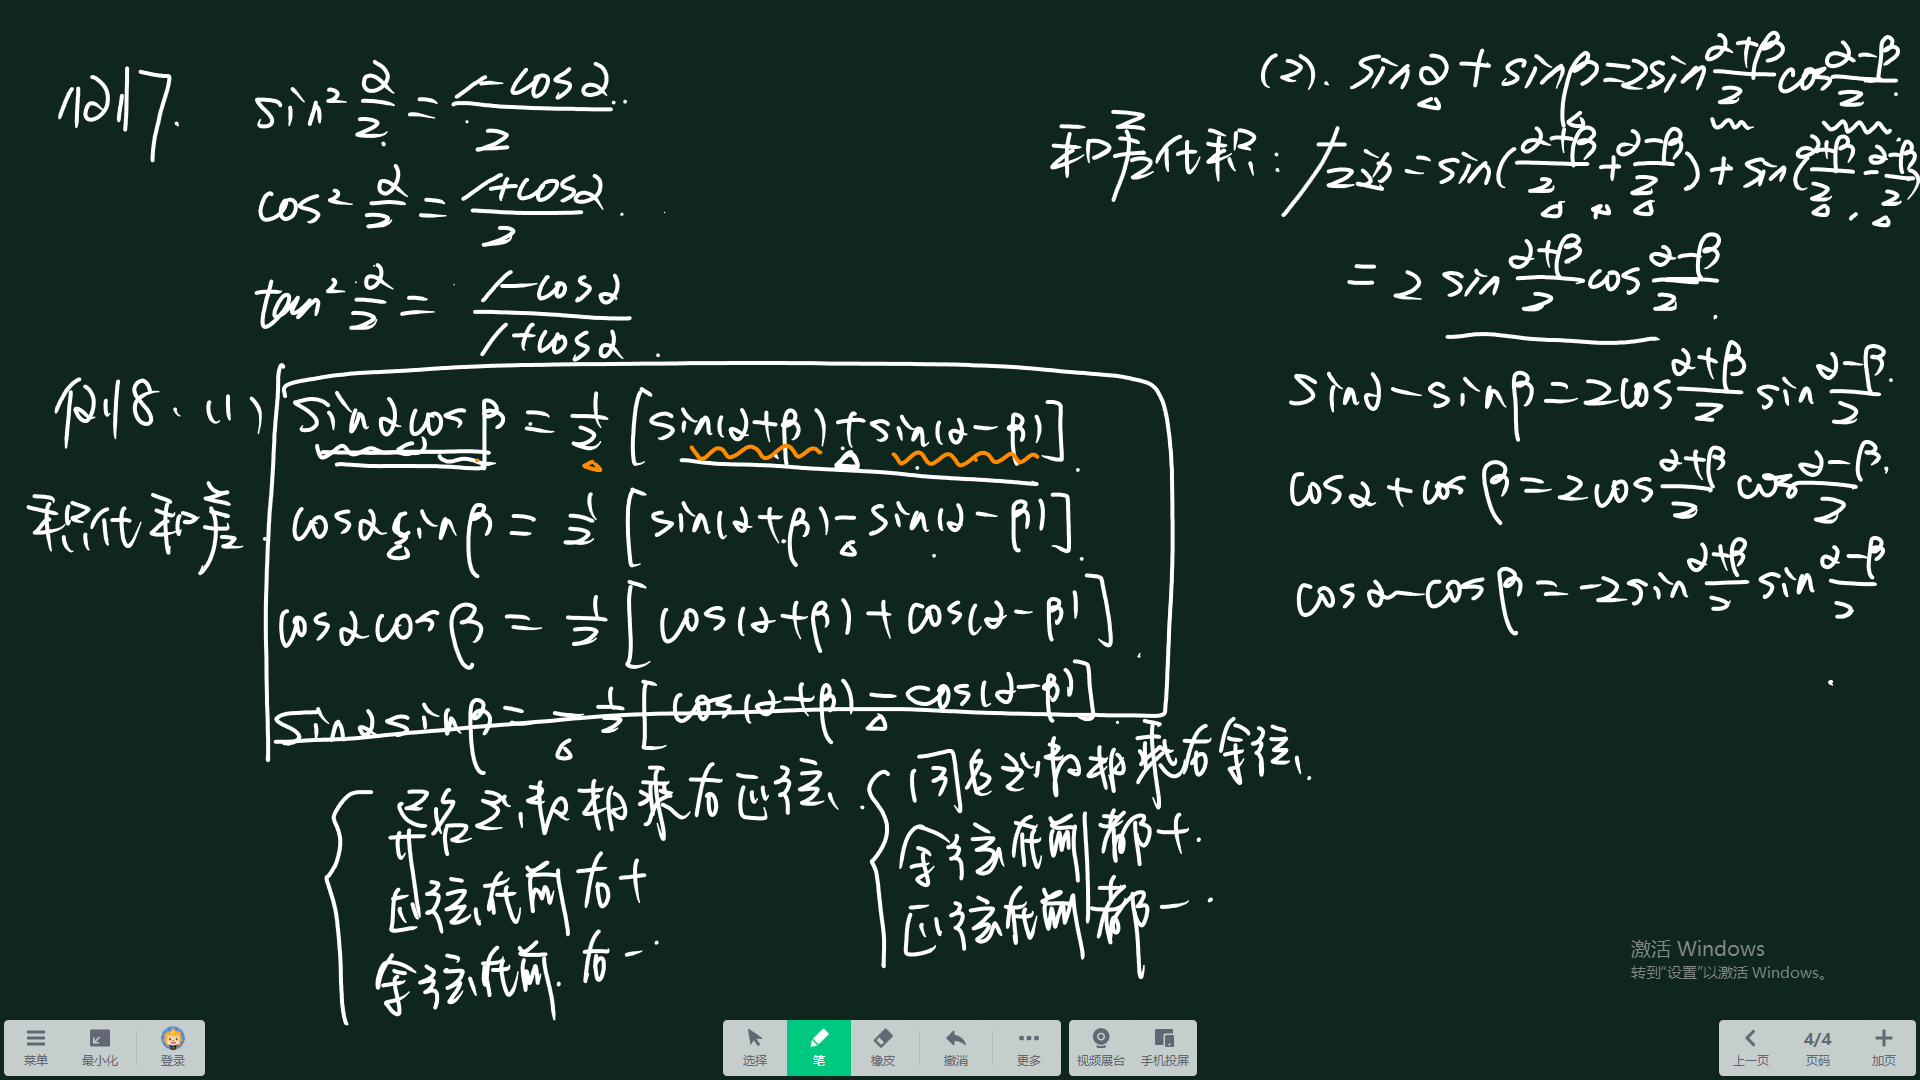 例7. sin² α/2 = (1-cosα)/2.
cos² α/2 = (1+cosα)/2.
tan² α/2 = (1-cosα)/(1+cosα).
例8. (1) sinαcosβ = 1/2 [sin(α+β)+sin(α-β)].
积化和差. cosαsinβ = 1/2 [sin(α+β)-sin(α-β)].
cosαcosβ = 1/2 [cos(α+β)+cos(α-β)].
sinαsinβ = -1/2 [cos(α+β)-cos(α-β)].
异名之积相乘右正弦.
正弦在前右+
余弦在前右-.
同名之积相乘右余弦.
余弦在前都+.
正弦在前都-.
(2). sinα+sinβ=2sin (α+β)/2 cos (α-β)/2.
和差化积: 左边=sin((α+β)/2+(α-β)/2)+sin((α+β)/2-(α-β)/2)
= 2 sin (α+β)/2 cos (α-β)/2.
sinα-sinβ=2cos (α+β)/2 sin (α-β)/2.
cosα+cosβ=2cos (α+β)/2 cos (α-β)/2.
cosα-cosβ=-2sin (α+β)/2 sin (α-β)/2
激活 Windows
转到“设置”以激活 Windows。
菜单 最小化 登录 选择 笔 橡皮 撤消 更多 视频展台 手机投屏 上一页 4/4 页码 加页